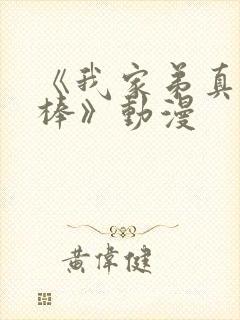 《我家弟真
棒》動漫
黄偉健